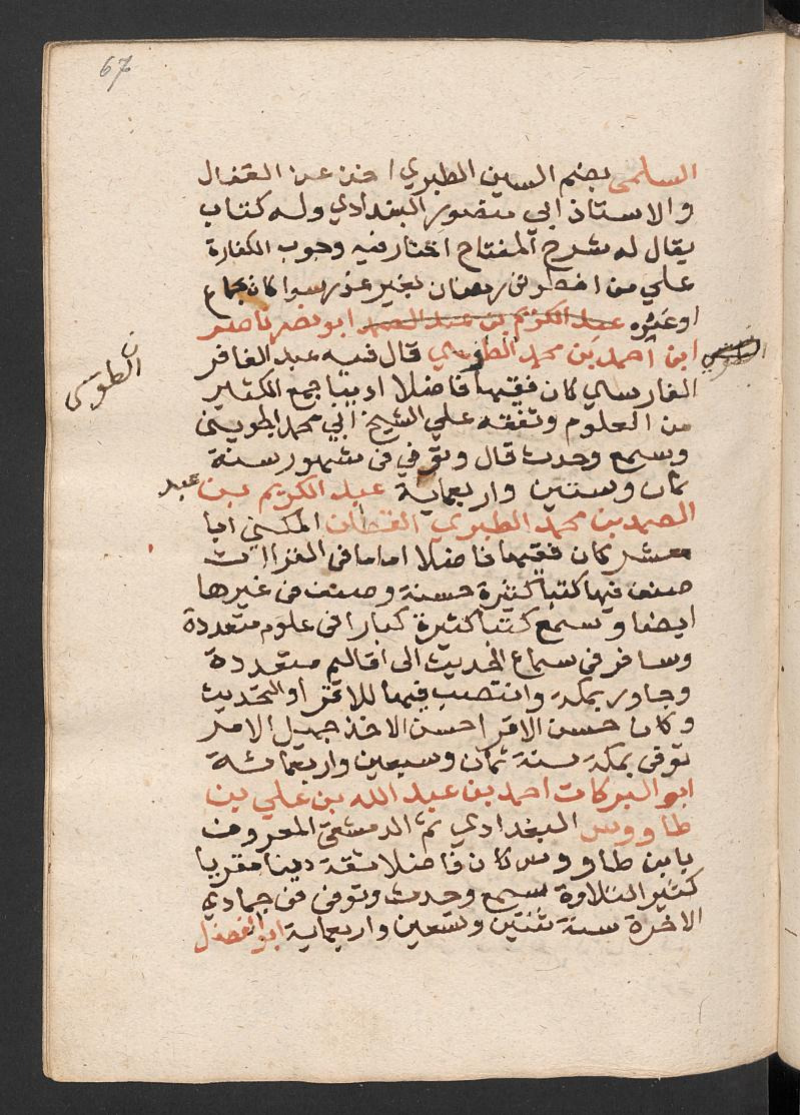 67
السلمى بضم السين الطبري اخذ عن القفال
والاستاذ ابي منصور البغدادي وله كتاب
يقال له شرح المفتاح اختار فيه وجوب الكفارة
علي من افطر في رمضان بغير عذر سوا كان بجماع
او غيره عبد الكريم بن عبد الصمد ابو نصر ناصر
ابن احمد بن محمد الطوسي قال فيه عبد الغافر
الطوسي
الفارسي كان فقيها فاضلا اديبا جمع الكثير
من العلوم وتفقه علي الشيخ ابي محمد الجويني
وسمع وحدث قال وتوفي في شهور سنة
ثمان وستين واربعماية عبد الكريم بن عبد
الصمد بن محمد الطبري القطان المكني ابا
معشر كان فقيها فاضلا اماما في القراات
صنف فيها كتبا كثيرة حسنة وصنف في غيرها
ايضا وسمع كتبا كثيرة كبارا في علوم متعددة
وسافر في سماع الحديث الى اقاليم متعددة
وجاور بمكة وانتصب فيها للاقرا والتحديث
وكان حسن الاقرا حسن الاخذ جميل الامر
توفى بمكة سنة ثمان وسبعين واربعمائة
ابو البركات احمد بن عبد الله بن علي بن
طاووس البغدادي ثم الدمشقي المعروف
بابن طاووس كان فاضلا ثقة دينا مقريا
كثير التلاوة سمع وحدث وتوفى في جمادي
الاخرة سنة ثنتين وتسعين واربعماية ابو الفضل